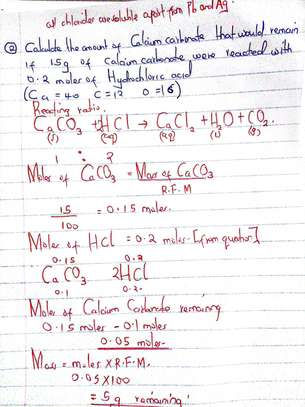 all chlorides are soluble apart from Pb and Ag.
② Calculate the amount of Calcium carbonate that would remain
if 15g of Calcium carbonate were reacted with
0.2 moles of Hydrochloric acid
(Ca = 40 C = 12 O = 16)
Reacting ratio.
CaCO3 + HCl → CaCl2 + H2O + CO2.
(s) (aq) (aq) (l) (g)
1 : 2
Moles of CaCO3 = Mass of CaCO3
R.F.M
15 = 0.15 moles.
100
Moles of HCl = 0.2 moles [from question]
0.15 0.2
CaCO3 2HCl
0.1 0.2
Moles of Calcium Carbonate remaining
0.15 moles - 0.1 moles
0.05 moles
Mass = moles X R.F.M.
0.05 X 100
= 5g remaining.